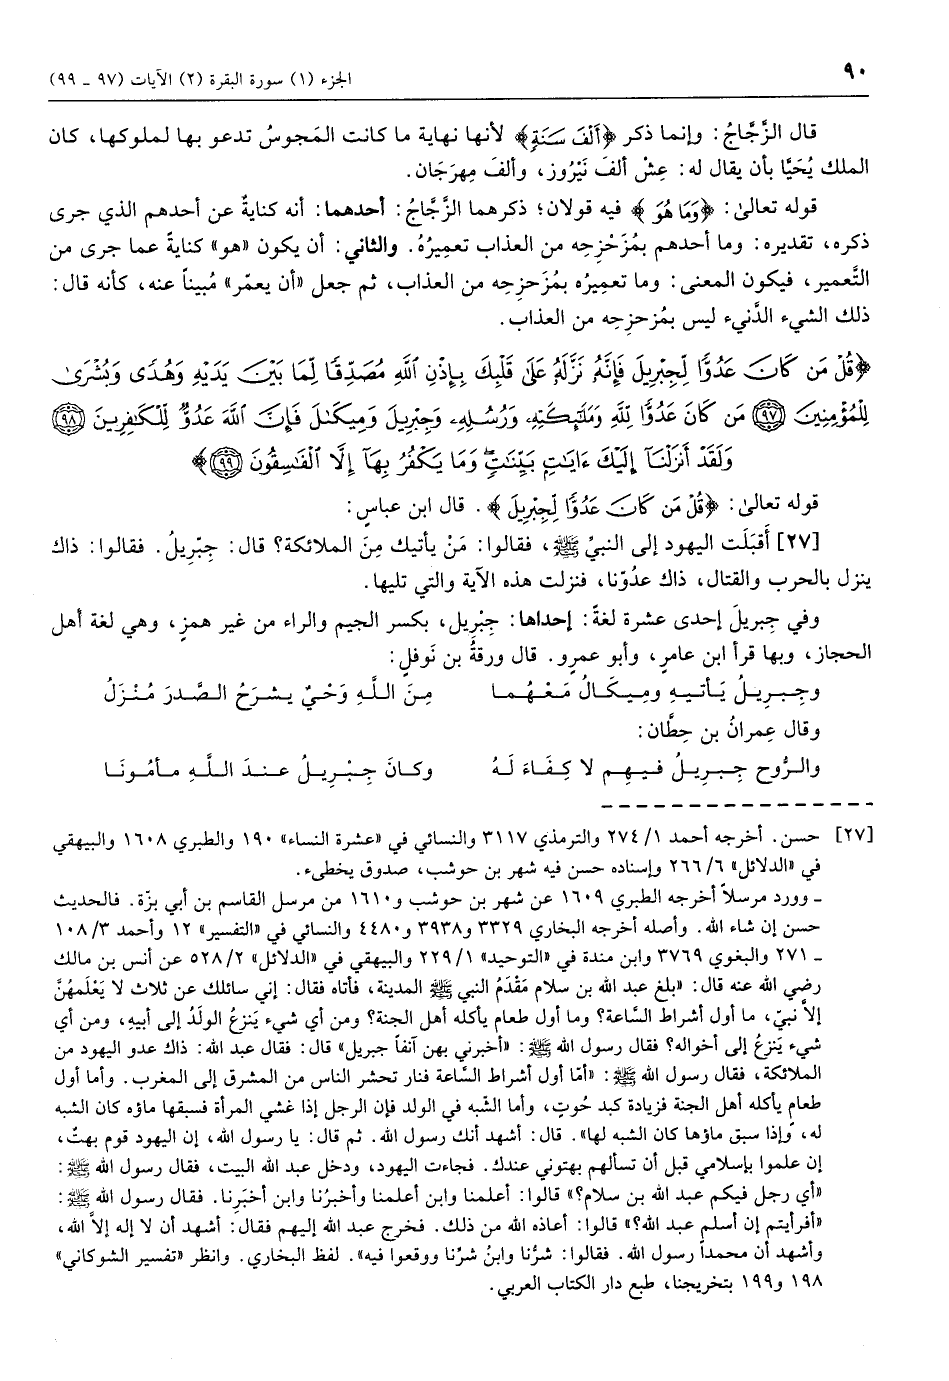 ٩٠
الجزء (١) سورة البقرة (٢) الآيات (٩٧ ـ ٩٩)
قال الزَّجَّاجُ: وإنما ذكر ﴿أَلْفَ سَنَةٍ﴾ لأنها نهاية ما كانت المَجوسُ تدعو بها لملوكها، كان
الملك يُحَيَّا بأن يقال له: عِشْ ألفَ نَيْرُوز، وألفَ مِهرَجَان.
قوله تعالىٰ: ﴿وَمَا هُوَ﴾ فيه قولان؛ ذكرهما الزَّجَّاجُ: أحدهما: أنه كنايةٌ عن أحدهم الذي جرى
ذكره، تقديره: وما أحدهم بمُزَحْزِحِه من العذاب تعمِيرُهُ. والثاني: أن يكون «هو» كنايةً عما جرى من
التَّعمير، فيكون المعنى: وما تعمِيرُه بمُزَحزِحِه من العذاب، ثم جعل «أن يعمّر» مُبيناً عنه، كأنه قال:
ذلك الشيء الدَّنيء ليس بمُزحزِحِه من العذاب.
﴿قُلْ مَن كَانَ عَدُوًّا لِّجِبْرِيلَ فَإِنَّهُۥ نَزَّلَهُۥ عَلَىٰ قَلْبِكَ بِإِذْنِ ٱللَّهِ مُصَدِّقًا لِّمَا بَيْنَ يَدَيْهِ وَهُدًى وَبُشْرَىٰ
لِلْمُؤْمِنِينَ ﴿٩٧﴾ مَن كَانَ عَدُوًّا لِّلَّهِ وَمَلَٰٓئِكَتِهِۦ وَرُسُلِهِۦ وَجِبْرِيلَ وَمِيكَىٰلَ فَإِنَّ ٱللَّهَ عَدُوٌّ لِّلْكَٰفِرِينَ ﴿٩٨﴾
وَلَقَدْ أَنزَلْنَآ إِلَيْكَ ءَايَٰتٍۭ بَيِّنَٰتٍ وَمَا يَكْفُرُ بِهَآ إِلَّا ٱلْفَٰسِقُونَ ﴿٩٩﴾﴾
قوله تعالىٰ: ﴿قُلْ مَن كَانَ عَدُوًّا لِّجِبْرِيلَ﴾. قال ابن عباسٍ:
[٢٧] أَقبَلَت اليهود إلى النبيِّ ﷺ، فقالوا: مَنْ يأتيك مِنَ الملائكة؟ قال: جِبْرِيلُ. فقالوا: ذاك
ينزل بالحرب والقتال، ذاك عدُوّنا، فنزلت هذه الآية والتي تليها.
وفي جِبريلَ إحدى عشرة لغةً: إحداها: جِبْرِيل، بكسر الجيم والراء من غير همزٍ، وهي لغة أهل
الحجاز، وبها قرأ ابن عامرٍ، وأبو عمرو. قال ورقةُ بن نَوفلٍ:
وجِبـرِيلُ يَـأتـيـهِ ومِيكَـالُ مَـعْـهُـمـا مِـنَ الـلَّـهِ وَحْيٌ يـشـرَحُ الـصَّـدرَ مُـنْـزَلُ
وقال عِمرانُ بن حِطَّان:
والـرُّوح جِـبـريلُ فـيـهِـم لا كِـفَـاءَ لَـهُ وكـانَ جِـبْـرِيـلُ عـنـدَ الـلَّـهِ مـأمُـونَـا
[٢٧] حسن. أخرجه أحمد ١/ ٢٧٤ والترمذي ٣١١٧ والنسائي في «عشرة النساء» ١٩٠ والطبري ١٦٠٨ والبيهقي
في «الدلائل» ٦/ ٢٦٦ وإسناده حسن فيه شهر بن حوشب، صدوق يخطىء.
ـ وورد مرسلاً أخرجه الطبري ١٦٠٩ عن شهر بن حوشب و١٦١٠ من مرسل القاسم بن أبي بزّة. فالحديث
حسن إن شاء الله. وأصله أخرجه البخاري ٣٣٢٩ و٣٩٣٨ و٤٤٨٠ والنسائي في «التفسير» ١٢ وأحمد ٣/ ١٠٨
ـ ٢٧١ والبغوي ٣٧٦٩ وابن مندة في «التوحيد» ١/ ٢٢٩ والبيهقي في «الدلائل» ٢/ ٥٢٨ عن أنس بن مالك
رضي الله عنه قال: «بلغ عبد الله بن سلام مَقْدَمُ النبي ﷺ المدينة، فأتاه فقال: إني سائلك عن ثلاث لا يَعْلَمهُنَّ
إلاَّ نبيّ، ما أول أشراط السَّاعة؟ وما أول طعام يأكله أهل الجنة؟ ومن أي شيء يَنزعُ الولَدُ إلى أبيهِ، ومن أي
شيء يَنزعُ إلى أخواله؟ فقال رسول الله ﷺ: «أخبرني بهن آنفاً جبريل» قال: فقال عبد الله: ذاك عدو اليهود من
الملائكة، فقال رسول الله ﷺ: «أمّا أول أشراط السَّاعة فنار تحشر الناس من المشرق إلى المغرب. وأما أول
طعام يأكله أهل الجنة فزيادة كبد حُوتٍ، وأما الشَّبه في الولد فإن الرجل إذا غشي المرأة فسبقها ماؤه كان الشبه
له، وإذا سبق ماؤها كان الشبه لها». قال: أشهد أنك رسول الله. ثم قال: يا رسول الله، إن اليهود قوم بهتٌ،
إن علموا بإسلامي قبل أن تسألهم بهتوني عندك. فجاءت اليهود، ودخل عبد الله البيت، فقال رسول الله ﷺ:
«أي رجل فيكم عبد الله بن سلام؟» قالوا: أعلمنا وابن أعلمنا وأخيرُنا وابن أخيَرِنا. فقال رسول الله ﷺ:
«أفرأيتم إن أسلم عبد الله؟» قالوا: أعاذه الله من ذلك. فخرج عبد الله إليهم فقال: أشهد أن لا إله إلاَّ الله،
وأشهد أن محمداً رسول الله. فقالوا: شرُّنا وابنُ شرِّنا ووقعوا فيه». لفظ البخاري. وانظر «تفسير الشوكاني»
١٩٨ و١٩٩ بتخريجنا، طبع دار الكتاب العربي.